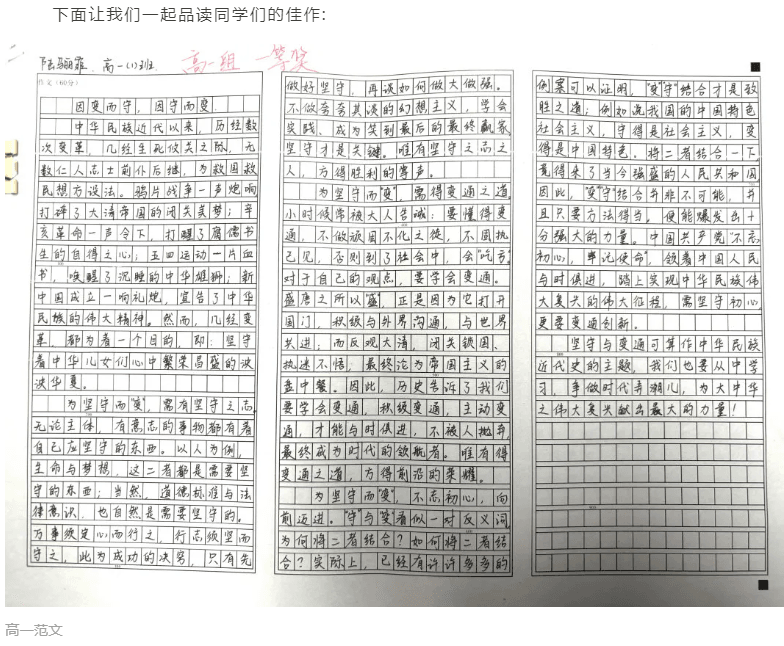 下面让我们一起品读同学们的佳作:
高一(1)班
高一组 一等奖
作文(60分)
因变而守,因守而变
中华民族近代以来,历经数
次变革,几经生死攸关之际,无
数仁人志士前仆后继,为救国救
民想方设法。鸦片战争一声炮响
打碎了大清帝国的闭关美梦;辛
亥革命一声令下,打醒了腐儒书
生的自得之心;五四运动一片血
书,唤醒了沉睡的中华雄狮;新
中国成立一响礼炮,宣告了中华
民族的伟大精神。然而,几经变
革,都为着一个目的,即:坚守
着中华儿女们心中繁荣昌盛的泱
泱华夏。
为坚守而"变",需有坚守之志。
无论主体,有意志的事物都有着
自己应坚守的东西。以人为例,
生命与梦想,这二者都是需要坚
守的东西;当然,道德标准与法
律意识,也自然是需要坚守的。
万事须定心而行之,行志须坚而
守之,此为成功的决窍,只有先
做好坚守,再谈如何做大做强。
不做夸夸其谈的幻想主义,学会
实践,成为笑到最后的最终赢家
坚守才是关键。唯有坚守之志之
人,方得胜利的掌声。
为坚守而"变",需得变通之道。
小时候常被大人告诫:要懂得变
通,不做顽固不化之徒,不固执
己见,否则到了社会中,会"吃亏"。
对于自己的观点,要学会变通。
盛唐之所以"盛",正是因为它打开
国门,积极与外界沟通,与世界
共进;而反观大清,闭关锁国、
执迷不悟,最终沦为帝国主义的
盘中餐。因此,历史告诉了我们
要学会变通,积极变通,主动变
通,才能与时俱进,不被人抛弃,
最终成为时代的领航者。唯有得
变通之道,方得前沿的荣耀。
为坚守而"变",不忘初心,向
前迈进。"守"与"变"看似一对反义词,
为何将二者结合?如何将二者结
合?实际上,已经有许许多多的
例案可以证明,"变""守"结合才是致
胜之道;例如说我国的中国特色
社会主义,守得是社会主义,变
得是中国特色。将二者结合一下,
竟得来了当今强盛的人民共和国
因此,"变""守"结合并非不可能,并
且只要方法得当,便能爆发出十
分强大的力量。中国共产党"不忘
初心,牢记使命",领着中国人民
与时俱进,踏上实现中华民族伟
大复兴的伟大征程,需坚守初心,
更要变通创新。
坚守与变通可算作中华民族
近代史的主题,我们也要从中学
习,争做时代弄潮儿,为大中华
之伟大复兴献出最大的力量!
高一范文